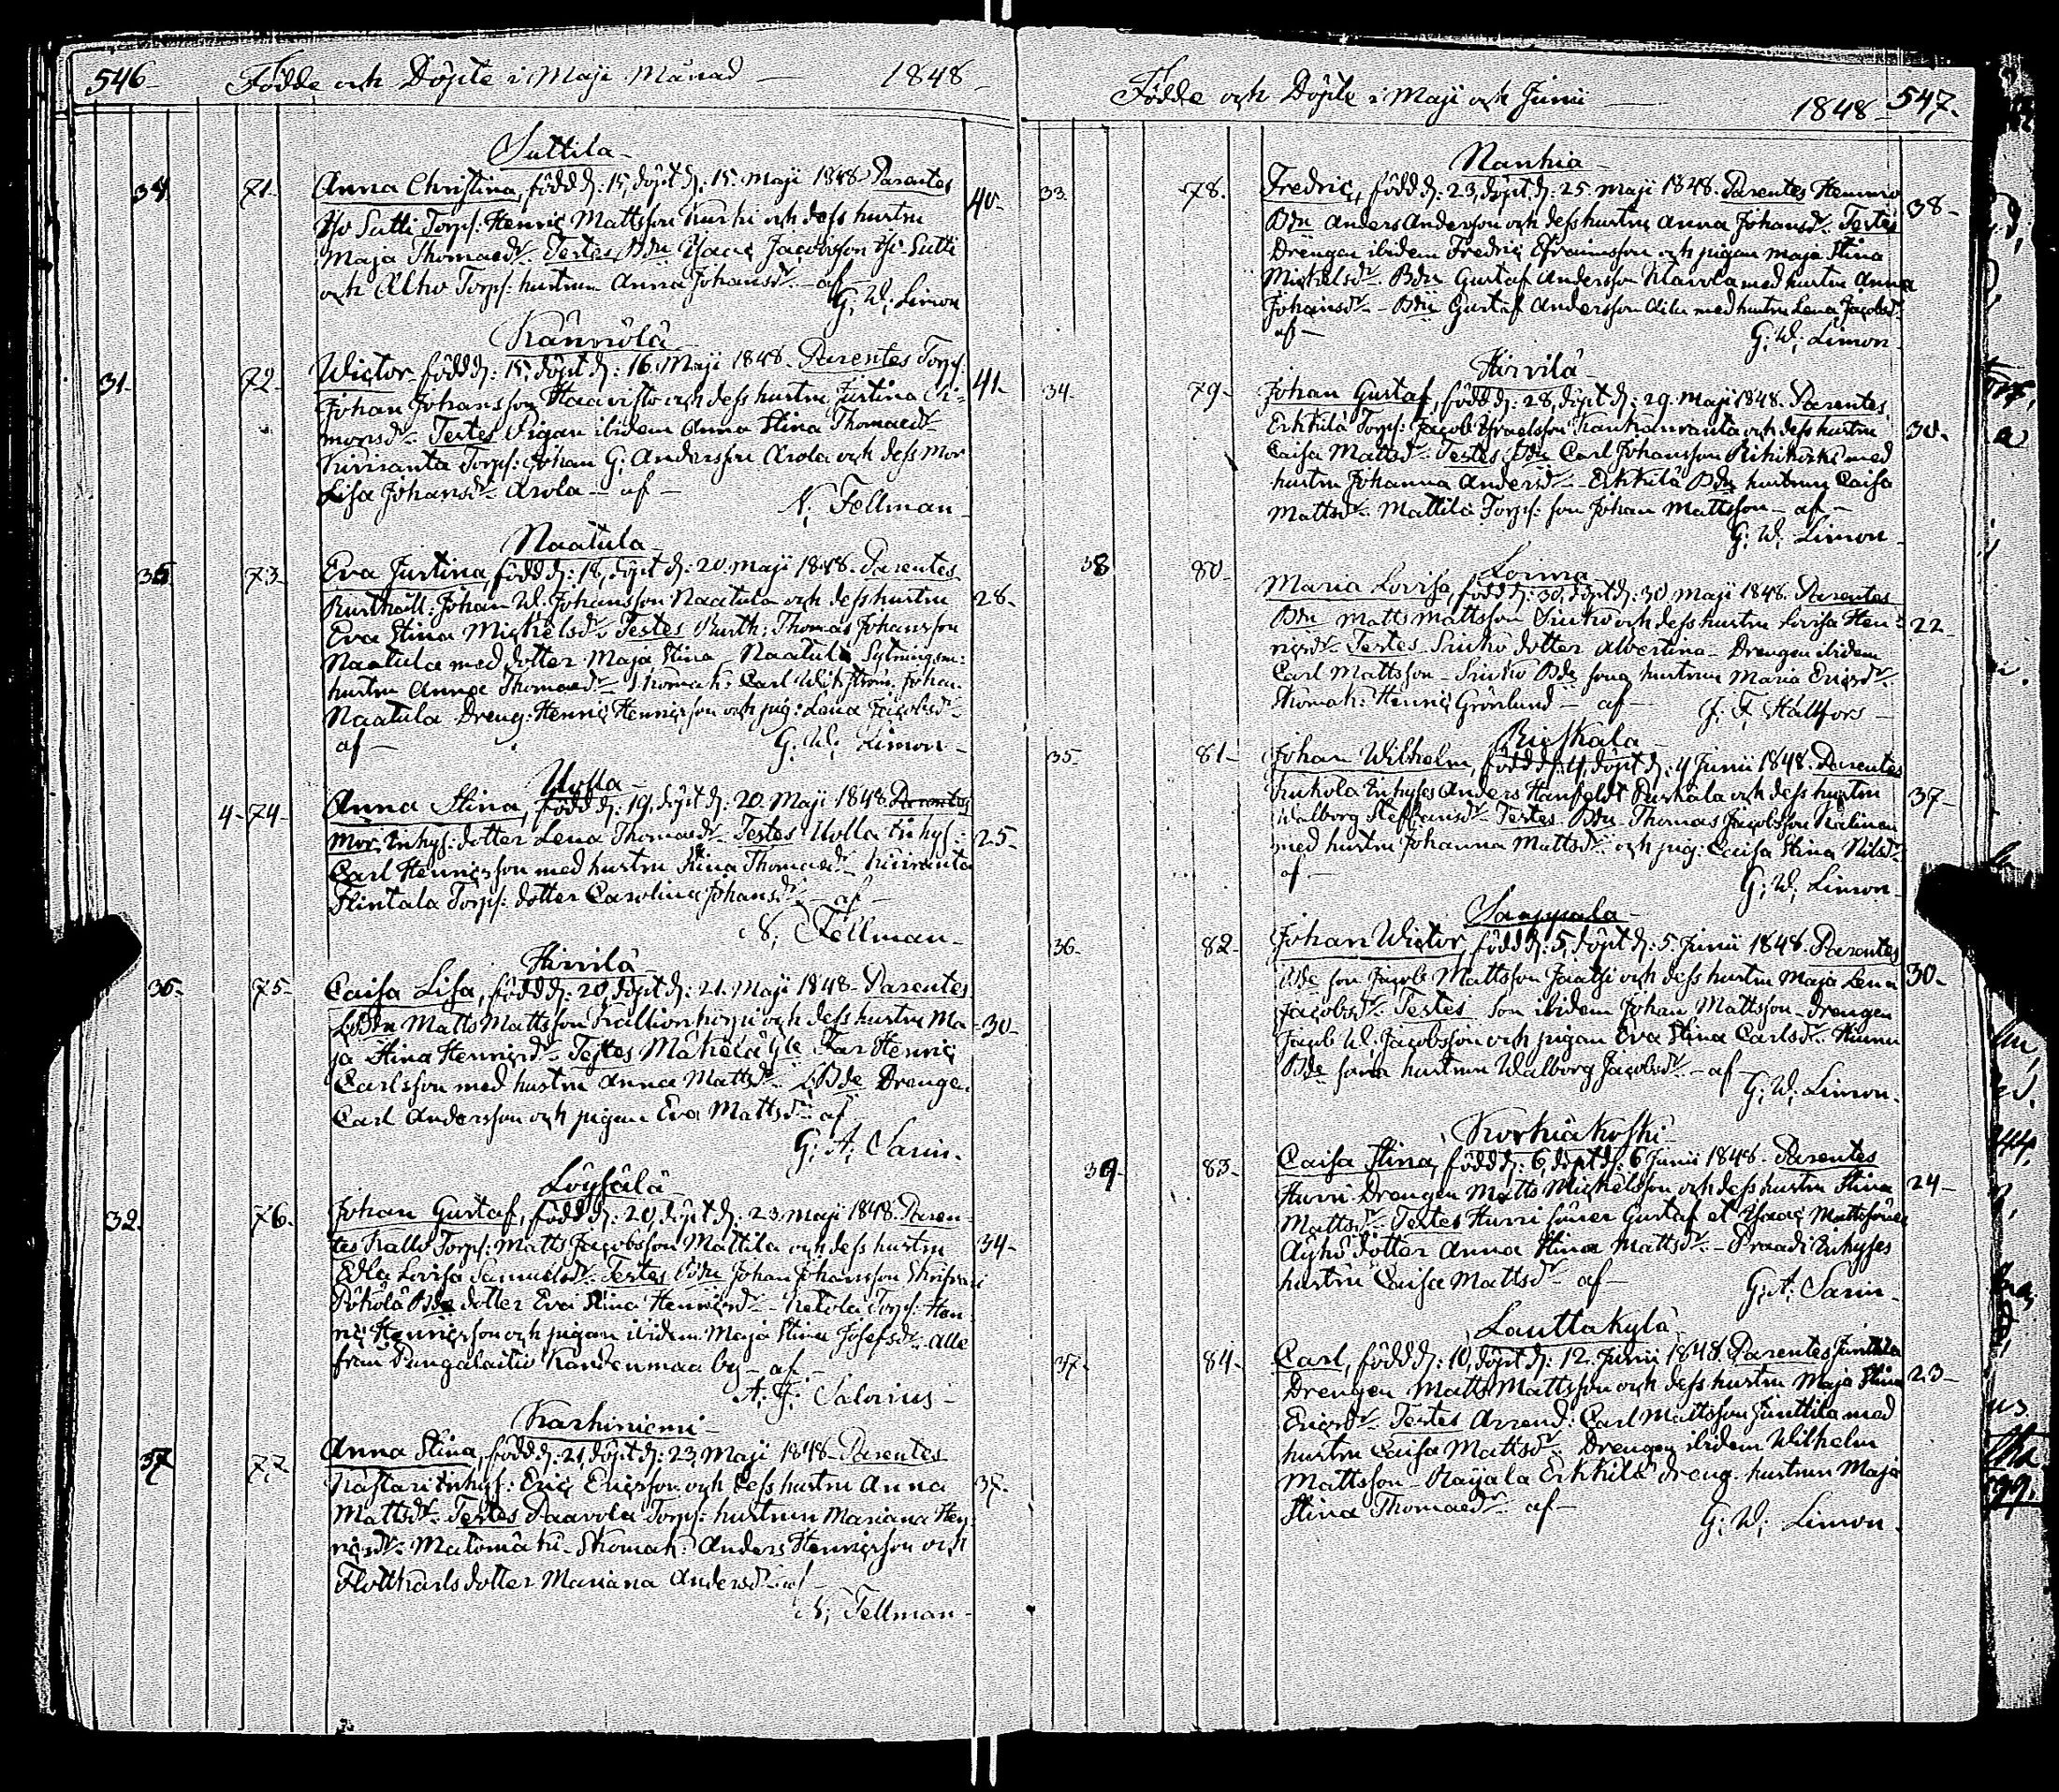 546 Födde och Döpte i Maji Månad 1848
Suttila
34 71 Anna Christina, född d: 15, döpt d: 15 Maji 1848 Parentes 40
Yso Sutti Torp: Henric Mattsson Kurki och dess hustru
Maja Thomaedr Testes Bdn Isaac Jacobsson Yso Sutti
och Alho Torp: hustrun Anna Johansdr af
G. W. Limon
Kännölä
31 72 Wictor född d: 15, döpt d: 16 Maji 1848 Parentes Torp: 41
Johan Johansson Haavisto och dess hustru Justina Si-
monsdr Testes Pigan ibidem Anna Stina Thomaedr
Kiviranta Torp: Johan G. Andersson Arola och dess Mor
Lisa Johansdr Arola af
N. Fellman
Naatula
35 73 Eva Justina, född d: 18, döpt d: 20 Maji 1848 Parentes
Rusthåll: Johan W. Johansson Naatula och dess hustru 28
Eva Stina Mickelsdr Testes Rusth: Thomas Johansson
Naatula med dotter Maja Stina Naatula Sytningsm:
hustru Anna Thomaedr Skomak: Carl Wikström, Johan
Naatula Dreng: Henric Henricsson och pig: Lena Jacobsdr
af G. W. Limon
Uolla
4 74 Anna Stina, född d: 19, döpt d: 20 Maji 1848 Parentes
Mor Inhys: dotter Lena Thomaedr Testes Uolla Inhys: 25
Carl Henricsson med hustru Stina Thomaedr Kiviranta
Hintala Torp: dotter Carolina Johansdr af
N. Fellman
Hirvilä
36 75 Caisa Lisa, född d: 20, döpt d: 21 Maji 1848 Parentes
LBdn Matts Mattsson Kallionkorpi och dess hustru Ma- 30
ja Stina Henricsdr Testes Mäkelä Yli Kar Henric
Carlsson med hustru Anna Mattsdr LBde Drengen
Carl Andersson och pigan Eva Mattsdr af
G. A. Sarin
Löysälä
32 76 Johan Gustaf, född d: 20, döpt d: 23 Maji 1848 Paren-
tes Kallo Torp: Matts Jacobsson Mattila och dess hustru 34
Edla Lovisa Samuelsdr Testes Bdn Johan Johansson
Pöhölä Bde dotter Eva Stina Henricsdr Ketola Torp: Hen-
ric Henricsson och pigan ibidem Maja Stina Josefsdr alle
från Pungalaitio Kandenmaa by af
A. F. Salovius
Karhiniemi
37 77 Anna Stina, född d: 21, döpt d: 23 Maji 1848 Parentes
Rastari Inhys: Eric Ericsson och dess hustru Anna 37
Mattsdr Testes Paavola Torp: hustrun Mariana Hen-
ricsdr Matomäki Skomak: Anders Henricsson och
Flottkarls dotter Mariana Andersdr af
N. Fellman
Födde och Döpte i Maji och Junii 1848 547
Nanhia
33 78 Fredric, född d: 23, döpt d: 25 Maji 1848 Parentes Hemmo
Bdn Anders Andersson och dess hustru Anna Johansdr Testes 38
Drengen ibidem Fredric Efraimsson och pigan Maja Stina
Mickelsdr Bdn Gustaf Andersson Klavola med hustru Anna
Johansdr Bdn Gustaf Andersson Äiku med hustru Lena Jacobsdr
af G. W. Limon
Hirvilä
34 79 Johan Gustaf, född d: 28, döpt d: 29 Maji 1848 Parentes
Erkkilä Torp: Jacob Israelsson Kankanranta och dess hustru 30
Caisa Mattsdr Testes Bdn Carl Johansson Rihikoski med
hustru Johanna Andersdr Erkkilä Bdn hustrun Caisa
Mattsdr Mattila Torp: son Johan Mattsson af
G. W. Limon
Loima
38 80 Maria Lovisa, född d: 30, döpt d: 30 Maji 1848 Parentes
Bdn Matts Mattsson Sinko och dess hustru Lovisa Hen- 22
ricsdr Testes Sinko dotter Albertina Drengen ibidem
Carl Mattsson Sinko Bde sona hustrun Maria Ericsdr
Skomak: Henric Grönlund af J. F. Hällfors
Rieskala
35 81 Johan Wilhelm, född d: 4, döpt d: 4 Junii 1848 Parentes
Kukola Inhyses Anders Hanfeldt Puskala och dess hustru 37
Walborg Steffansdr Testes Bdn Thomas Jacobsson Kalinen
med hustru Johanna Mattsdr och pig: Caisa Stina Nilsdr
af G. W. Limon
Sampala
36 82 Johan Wictor, född d: 5, döpt d: 5 Junii 1848 Parentes
Bde son Jacob Mattsson Jaatsi och dess hustru Maja Lena 30
Jacobsdr Testes Son ibidem Johan Mattsson Drengen
Jacob W. Jacobsson och pigan Eva Stina Carlsdr
Bde sona hustrun Walborg Jacobsdr af
G. W. Limon
Korkiakoski
39 83 Caisa Stina, född d: 6, döpt d: 6 Junii 1848 Parentes
Hurri Drengen Matts Mickelsson och dess hustru Stina 24
Mattsdr Testes Hurri söner Gustaf et Isaac Mattssöner
Äyhö dotter Anna Stina Mattsdr Praadi Inhyses
hustru Caisa Mattsdr af G. A. Sarin
Lauttakylä
37 84 Carl, född d: 10, döpt d: 12 Junii 1848 Parentes Junttila
Drengen Matts Mattsson och dess hustru Maja Stina 23
Ericsdr Testes Arrend: Carl Mattsson Junttila med
hustru Caisa Mattsdr Drengen ibidem Wilhelm
Mattsson Nayala Erkkilä dreng hustrun Maja
Stina Thomaedr af
G. W. Limon